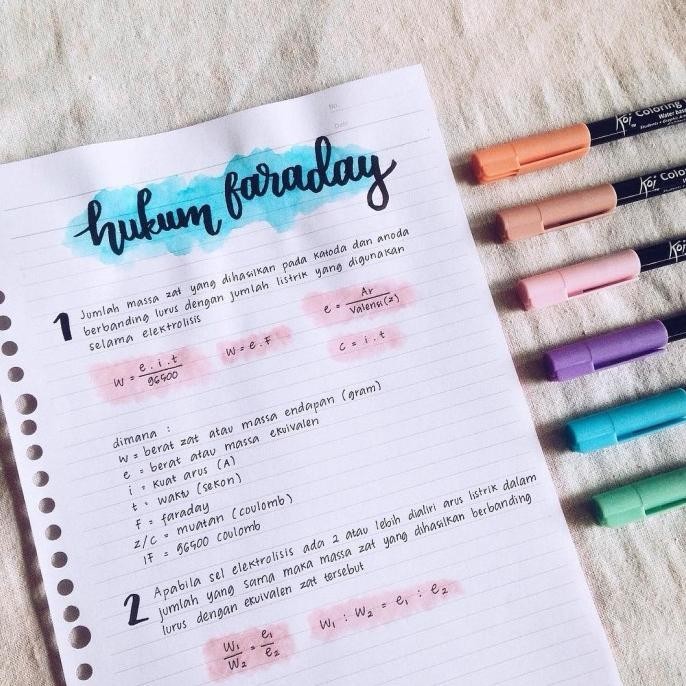 No.
Date
hukum faraday
1 Jumlah massa zat yang dihasilkan pada katoda dan anoda
berbanding lurus dengan jumlah listrik yang digunakan
selama elektrolisis
W = e . i . t / 96500
W = e . F
e = Ar / Valensi (z)
C = i . t
dimana :
W = berat zat atau massa endapan (gram)
e = berat atau massa ekuivalen
i = kuat arus (A)
t = waktu (sekon)
F = faraday
z/c = muatan (coulomb)
1F = 96500 coulomb
2 Apabila sel elektrolisis ada 2 atau lebih dialiri arus listrik dalam
jumlah yang sama maka massa zat yang dihasilkan berbanding
lurus dengan ekuivalen zat tersebut
W₁/W₂ = e₁/e₂
W₁ : W₂ = e₁ : e₂
Koi Coloring
Water base
Koi Colo
Koi